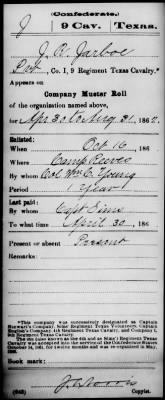 (Confederate.)
J 9 Cav. Texas.
J. R. Jarboe
Pvt, Co. I, 9 Regiment Texas Cavalry.*
Appears on
Company Muster Roll
of the organization named above,
for Apr 30 to Aug 31, 1862.
Enlisted:
When Oct 16, 186
Where Camp Reeves
By whom Col Wm C. Young
Period 1 Year
Last paid:
By whom Capt Sims
To what time April 30, 186
Present or absent Present
Remarks:
*This company was successively designated as Captain
Regiment Texas Volunteers, Captain
Regiment Texas Cavalry, and Company I,
9th Regiment Texas Cavalry.
The 9th (also known as the 4th and as Sims') Regiment Texas
Cavalry was accepted into the service of the Confederate States
October 14, 1861, for twelve months and was re-organized in May,
1862.
Book mark:
(642)
Copyist.